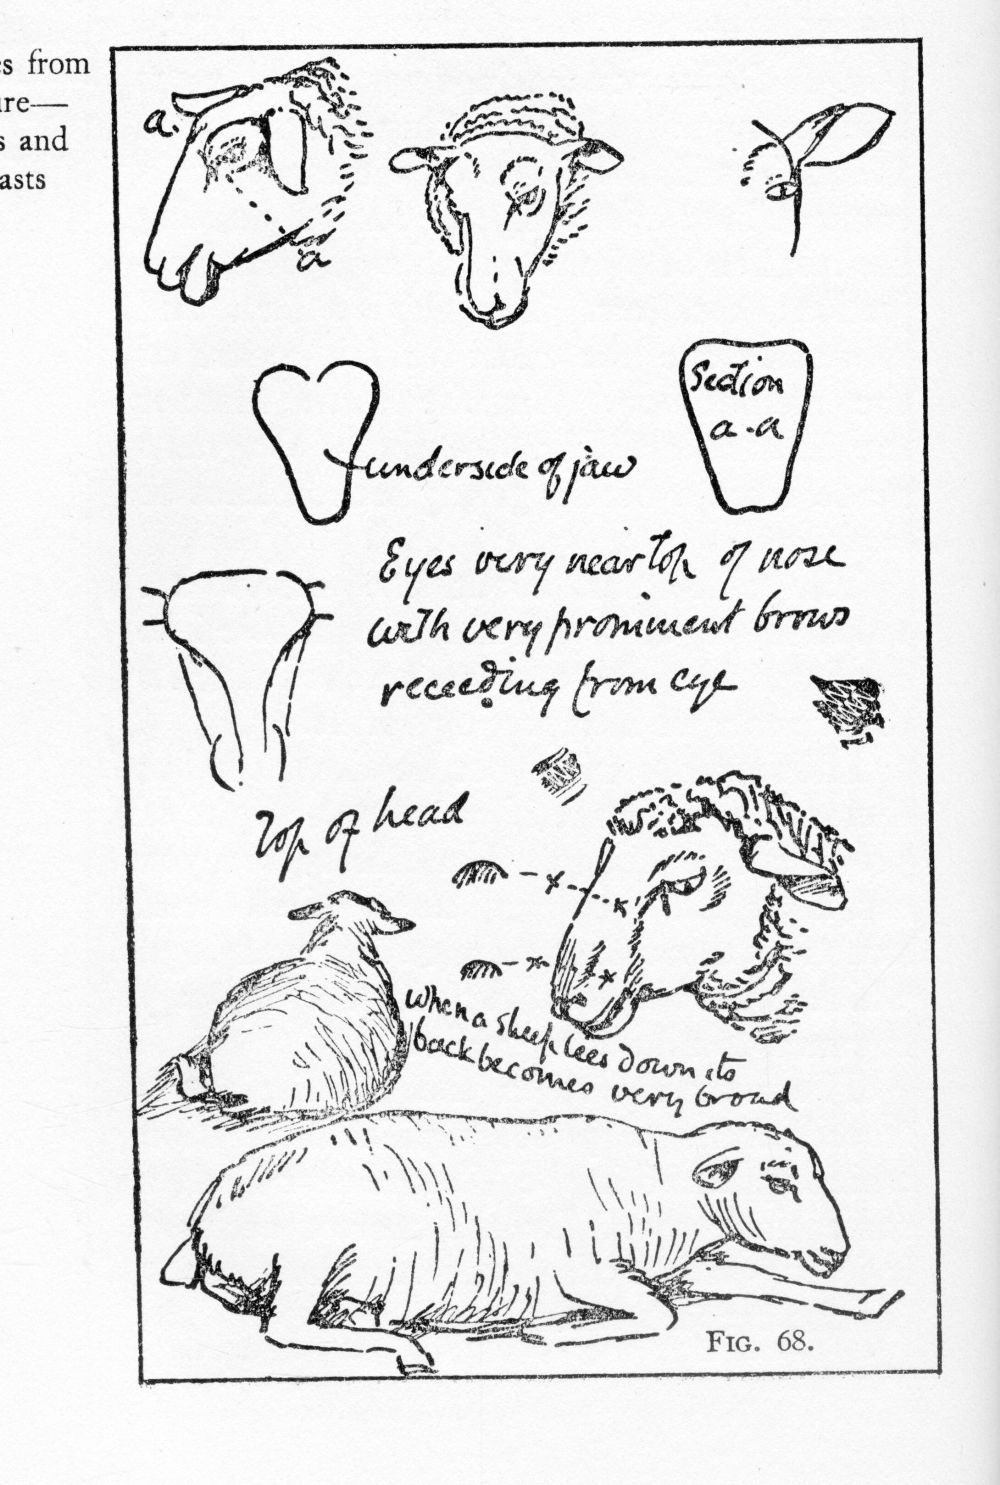 es from
ure—
s and
asts
a.
a
underside of jaw
Section
a - a
Eyes very near top of nose
with very prominent brows
receeding from eye
Top of head
When a sheep lees down its
back becomes very broad
FIG. 68.